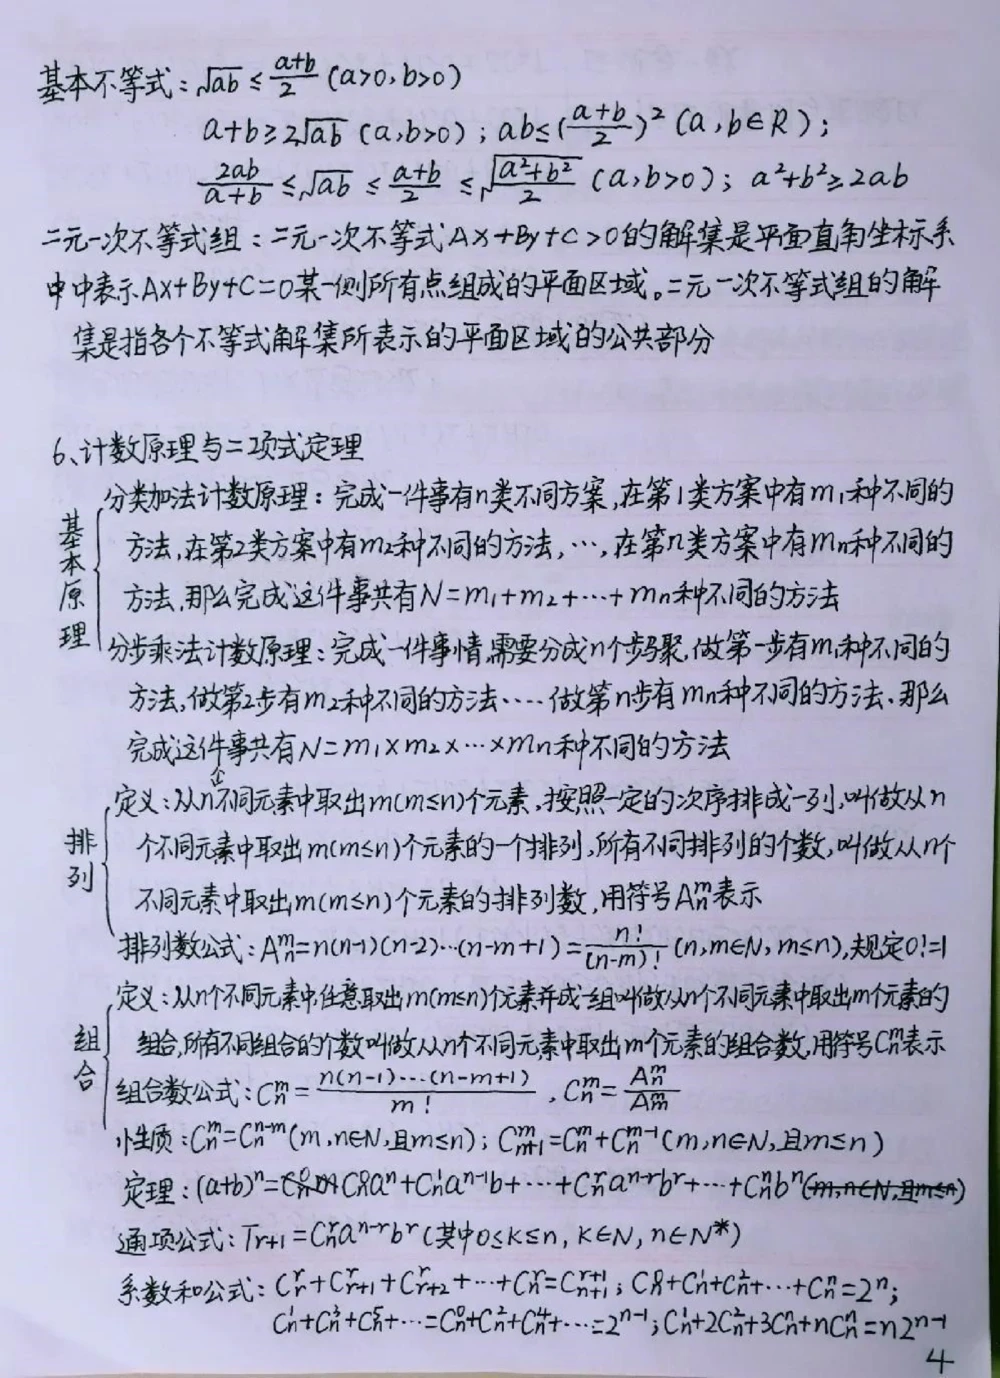 基本不等式：√ab ≤ (a+b)/2 (a>0,b>0)
a+b≥2√ab (a,b>0)；ab≤((a+b)/2)² (a,b∈R)；
2ab/(a+b) ≤ √ab ≤ (a+b)/2 ≤ √((a²+b²)/2) (a,b>0)；a²+b²≥2ab
二元一次不等式组：二元一次不等式Ax+By+C>0的解集是平面直角坐标系
中中表示Ax+By+C=0某一侧所有点组成的平面区域。二元一次不等式组的解
集是指各个不等式解集所表示的平面区域的公共部分
6、计数原理与二项式定理
基本原理
分类加法计数原理：完成一件事有n类不同方案,在第1类方案中有m₁种不同的
方法,在第2类方案中有m₂种不同的方法,…,在第n类方案中有mₙ种不同的
方法,那么完成这件事共有N=m₁+m₂+…+mₙ种不同的方法
分步乘法计数原理：完成一件事情,需要分成n个步骤,做第一步有m₁种不同的
方法,做第2步有m₂种不同的方法····做第n步有mₙ种不同的方法、那么
完成这件事共有N=m₁×m₂×…×mₙ种不同的方法
排列
定义：从n个不同元素中取出m(m≤n)个元素,按照一定的次序排成一列,叫做从n
个不同元素中取出m(m≤n)个元素的一个排列,所有不同排列的个数,叫做从n个
不同元素中取出m(m≤n)个元素的排列数,用符号Aₙᵐ表示
排列数公式：Aₙᵐ=n(n-1)(n-2)…(n-m+1)=n!/(n-m)! (n,m∈N,m≤n),规定0!=1
组合
定义：从n个不同元素中,任意取出m(m≤n)个元素并成一组叫做从n个不同元素中取出m个元素的
组合,所有不同组合的个数叫做从n个不同元素中取出m个元素的组合数,用符号Cₙᵐ表示
组合数公式：Cₙᵐ=n(n-1)…(n-m+1)/m!，Cₙᵐ=Aₙᵐ/Aₘᵐ
性质：Cₙᵐ=Cₙⁿ⁻ᵐ(m,n∈N,且m≤n)；Cₘ₊₁ᵐ=Cₙᵐ+Cₙᵐ⁻¹(m,n∈N,且m≤n)
定理：(a+b)ⁿ=Cₙ⁰aⁿ+Cₙ¹aⁿ⁻¹b+…+Cₙʳaⁿ⁻ʳbʳ+…+Cₙⁿbⁿ(m,n∈N,且m≤n)
通项公式：Tᵣ₊₁=Cₙʳaⁿ⁻ʳbʳ(其中0≤k≤n,k∈N,n∈N*)
系数和公式：Cᵣʳ+Cᵣ₊₁ʳ+Cᵣ₊₂ʳ+…+Cₙʳ=Cₙ₊₁ʳ⁺¹；Cₙ⁰+Cₙ¹+Cₙ²+…+Cₙⁿ=2ⁿ；
Cₙ¹+Cₙ³+Cₙ⁵+…=Cₙ⁰+Cₙ²+Cₙ⁴+…=2ⁿ⁻¹；Cₙ¹+2Cₙ²+3Cₙⁿ+nCₙⁿ=n2ⁿ⁻¹
4